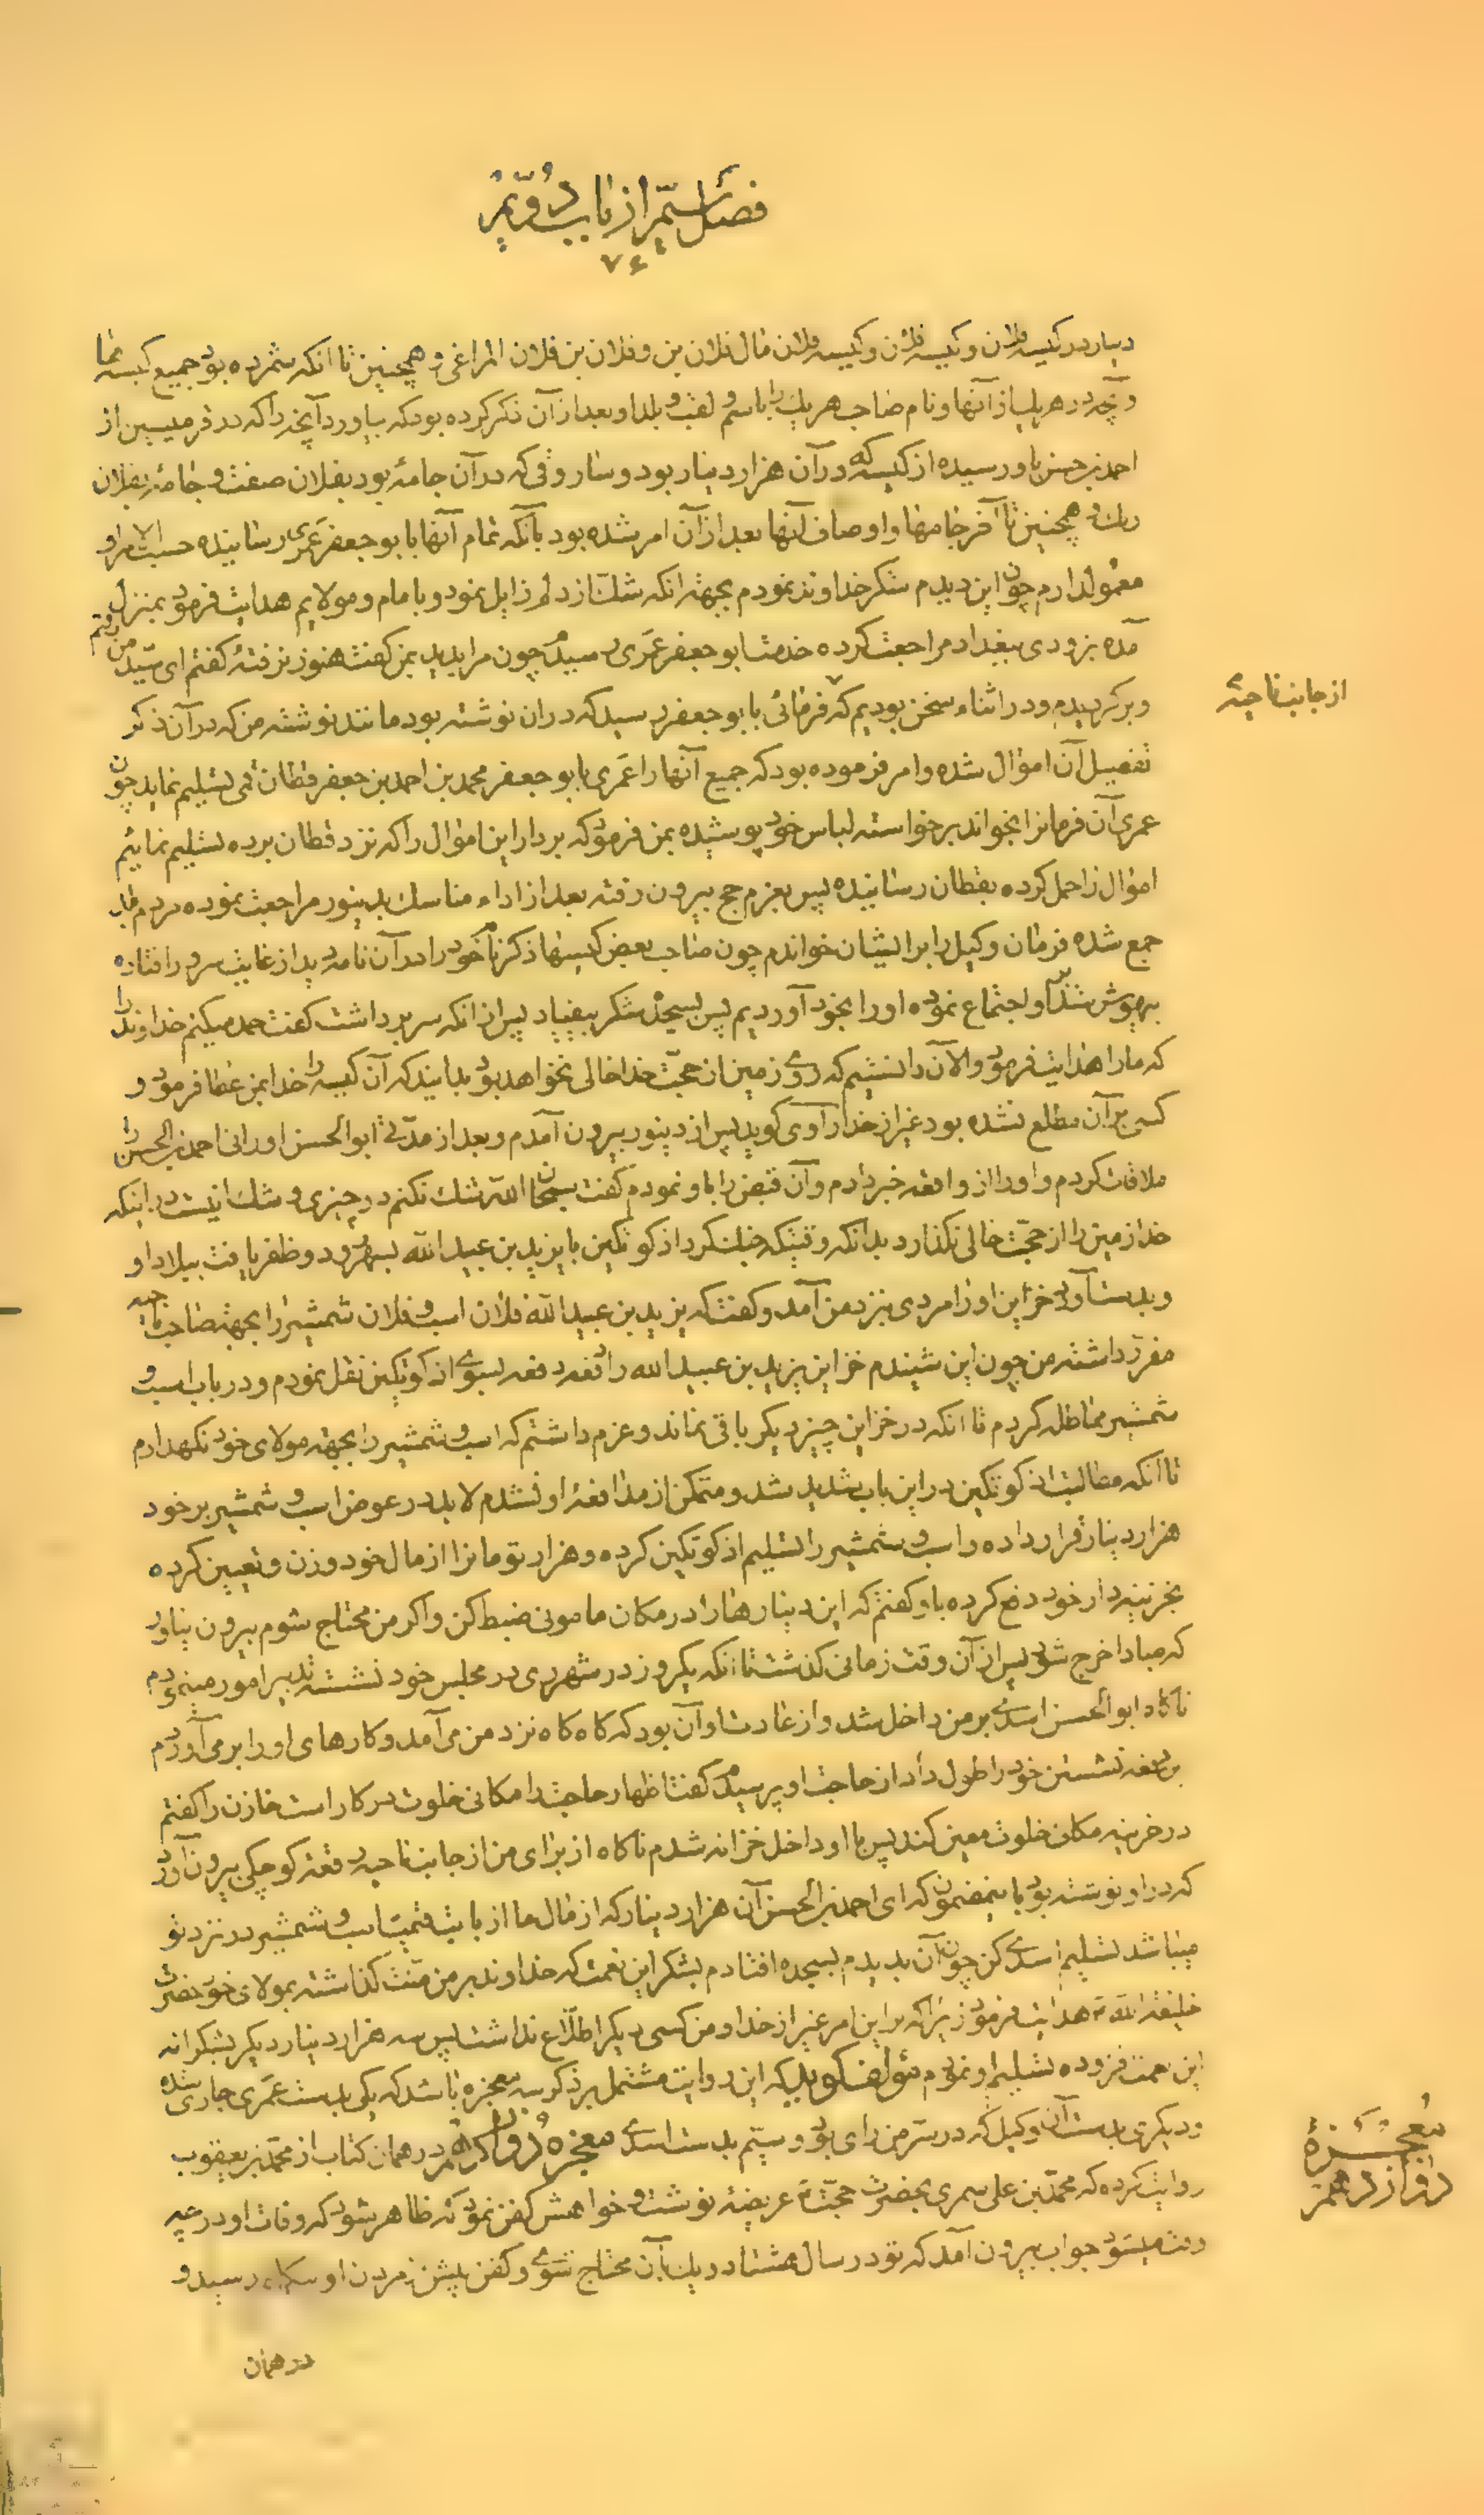 فصل سیم از باب دویم
۷۴
دینار در کیسه فلان و کیسه فلان و کیسه فلان مال فلان بن و فلان بن فلان المراغی و همچنین تا انکه شمرده بود جمیع کیسه ها
و آنچه در هر یک از آنها و نام صاحب هر یک را باسم و لقب و بلد او بعد از آن ذکر کرده بود که بیاورد آنچه را که در قرمیسین از
احمد بن حسن باو رسیده از کیسه که در آن هزار دینار بود و سار وقی که در آن جامه بود بفلان صفت و جامه بفلان
رنک و همچنین تا آخر جامها و اوصاف آنها بعد از آن امر شده بود بآنکه تمام آنها با بو جعفر عمری رسانیده حسب الامر او
معمول دارم چون این دیدم شکر خداوند نمودم بجهة انکه شک از دلم زایل نمود و بامام و مولایم هدایت فرمود بمنزل
آمده بزودی ببغداد مراجعت کرده خدمت ابو جعفر عمری رسیدم چون مرا بدید بمن گفت هنوز نرفته گفتم ای سید من رفتم
و برکردیدم و در اثناء سخن بودیم که فرمانی با بو جعفر رسید که در ان نوشته بود مانند نوشته من که در آن ذکر
از جانب ناحیه
تفصیل آن اموال شده و امر فرموده بود که جمیع آنها را عمری با بو جعفر محمد بن احمد بن جعفر قطان قمی تسلیم نماید چون
عمری آن فرمانرا بخواند برخواسته لباس خود پوشیده بمن فرمود که بردار این اموال را که نزد قطان برده تسلیم نمائیم
اموال را حمل کرده بقطان رسانیده پس بعزم حج بیرون رفته بعد از اداء مناسک بدینور مراجعت نموده مردم
جمع شده فرمان وکیل را برایشان خواندم چون صاحب بعض کیسها ذکر نام خود را در آن نامه دید از غایت سرور افتاده
بیهوش شد و اجتماع نموده او را بخود آوردیم پس بسجده شکر بیفتاد پس از انکه سر برداشت گفت حمد میکنم خداوند را
که ما را هدایت فرمود والان دانستیم که روی زمین از حجت خدا خالی نخواهد بود بدانید که آن کیسه را خدا بمن عطا فرمود و
کسی بر آن مطلع نشده بود غیر از خدا راوی گوید پس از دینور بیرون آمدم و بعد از مدتی ابوالحسن اورانی احمد بن الحسن را
ملاقات کردم و او را از واقعه خبر دادم و آن قبض را باو نمودم گفت سبحان الله شک نکنم در چیزی و شک نیست در اینکه
خدا زمین را از حجت خالی نکذارد بدانکه وقتیکه جنک کرد اذکوتکین با یزید بن عبید الله بسهرورد و ظفر یافت ببلاد او
و بدست آورد خزاین او را مردی بنزد من آمد و گفت که یزید بن عبید الله فلان اسب و فلان شمشیر را بجهة صاحب ناحیه
مقرر داشته من چون این شنیدم خزاین یزید بن عبید الله را دفعه دفعه بسوی اذکوتکین نقل نمودم و در باب اسب و
شمشیر مماطله کردم تا انکه در خزاین چیز دیکر باقی نماند و عزم داشتم که اسب و شمشیر را بجهة مولای خود نکهدارم
تا انکه مطالبت اذکوتکین در این باب شدید شد و متمکن از مدافعه او نشدم لابد در عوض اسب و شمشیر بر خود
هزار دینار قرار داده و اسب و شمشیر را تسلیم اذکوتکین کرده و هزار تومانرا از مال خود وزن و تعیین کرده
بخزینه دار خود دفع کرده باو گفتم که این دینارها را در مکان مامونی ضبط کن و اکر من محتاج شوم بیرون نیاور
که مبادا خرج شود پس از آن وقت زمانی کذشت تا انکه یکروز در شهر ری در مجلس خود نشسته تدبیر امور مینمودم
ناکاه ابوالحسن اسدی بر من داخل شد و از عادت او آن بود که کاه کاه نزد من می آمد و کارهای او را بر می آوردم
این دفعه نشستن خود را طول داد از حاجت او پرسیدم گفت اظهار حاجت را مکانی خلوت در کار است خازن را گفتم
در خزینه مکان خلوت معین کند پس با او داخل خزانه شدم ناکاه از برای من از جانب ناحیه رقعه کوچکی بیرون آورد
که در او نوشته بود باینمضمون که ای احمد بن الحسن آن هزار دینار که از مال ما از بابت قیمت اسب و شمشیر در نزد تو
میباشد تسلیم اسدی کن چون آن بدیدم بسجده افتادم بشکر این نعمت که خداوند بر من منت کذاشته بمولای خود حضرت
خلیفة الله هدایت فرمود زیرا که بر این امر غیر از خدا و من کسی دیکر اطلاع نداشت پس سه هزار دینار دیکر بشکرانه
این نعمت فزوده تسلیم او نمودم مؤلف گوید که این روایت مشتمل بر ذکر سه معجزه باشد که یکی بدست عمری جاری شده
و دیکری بدست آن وکیل که در سر من رای بود و سیم بدست اسدی معجزه دوازدهم در همان کتاب از محمد بن یعقوب
معجزه دوازدهم
روایت کرده که محمد بن علی سمری بحضرت حجت عریضه نوشت و خواهش کفن نمود که ظاهر شود که وفات او در چه
وقت میشود جواب بیرون آمد که تو در سال هشتاد و یک بآن محتاج شوی و کفن پیش از مردن او رسید و
در همان